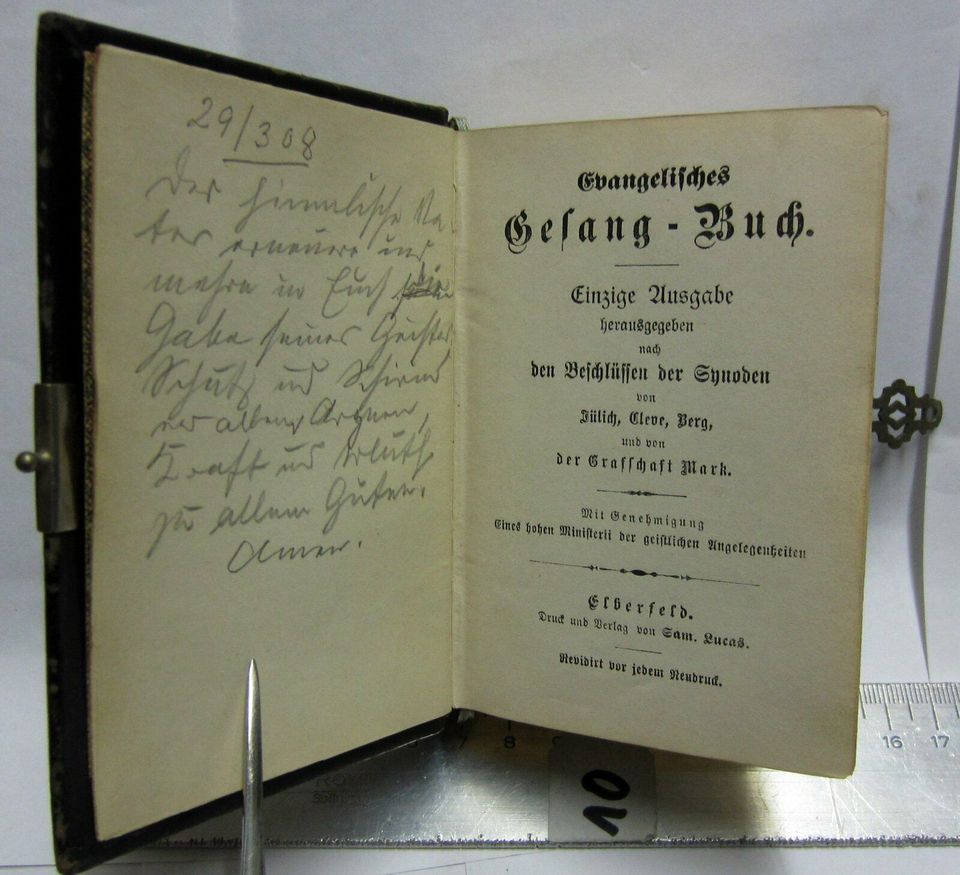 29/308
Der himmlische Va-
ter erneuere und
mehre in Euch die
Gabe seines Geistes
Schutz und Schirm
vor allem Argen,
Kraft und
zu allem Guten.
Amen.
Evangelisches
Gesang-Buch.
Einzige Ausgabe
herausgegeben
nach
den Beschlüssen der Synoden
von
Jülich, Cleve, Berg,
und von
der Grafschaft Mark.
Mit Genehmigung
Eines hohen Ministerii der geistlichen Angelegenheiten
Elberfeld.
Druck und Verlag von Sam. Lucas.
Revidirt vor jedem Neudruck.
8
16 17
10